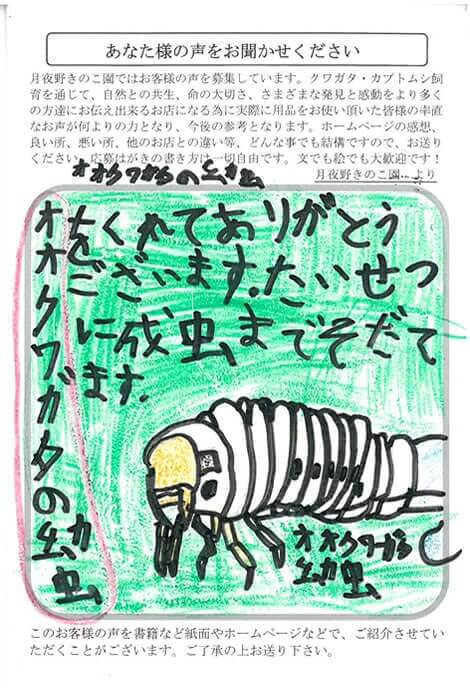 あなた様の声をお聞かせください
月夜野きのこ園ではお客様の声を募集しています。クワガタ・カブトムシ飼
育を通じて、自然との共生、命の大切さ、さまざまな発見と感動をより多く
の方達にお伝え出来るお店になる為に実際に用品をお使い頂いた皆様の率直
なお声が何よりの力となり、今後の参考となります。ホームページの感想、
良い所、悪い所、他のお店との違い等、どんな事でも結構ですので、お送り
ください。応募はがきの書き方は一切自由です。文でも絵でも大歓迎です！
月夜野きのこ園 より
オオクワがらの幼虫
オオクワガタの幼虫
をくれてありがとう
ございます.たいせつ
に成虫までそだて
ます.
オオクワがら
幼虫
このお客様の声を書籍など紙面やホームページなどで、ご紹介させてい
ただくことがございます。ご了承の上お送り下さい。